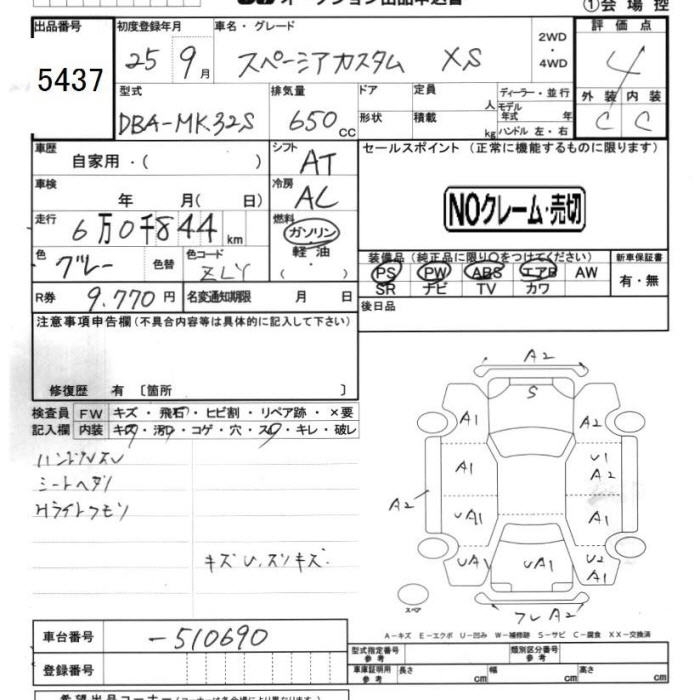 オークション出品申込書
①会場控
出品番号 初度登録年月 車名・グレード 評価点
5437 25 9月 スペーシアカスタム XS 2WD・4WD 4
型式 排気量 ドア 定員 人 ディーラー・並行 外装 内装
DBA-MK32S 650cc 形状 積載 kg モデル年式 年 C C
ハンドル 左・右
車歴 自家用・( ) シフト AT セールスポイント (正常に機能するものに限ります)
車検 年 月(日) 冷房 AC
NOクレーム・売切
走行 6万0千844km 燃料 ガソリン・軽油・( )
色 グレー 色替 色コード ZLY
装備品(純正品に限り○をつけてください) 新車保証書
PS PW ABS エアB AW 有・無
SR ナビ TV カワ
R券 9,770円 名変通知期限 月 日 後日品
注意事項申告欄(不具合内容等は具体的に記入して下さい)
修復歴 有 〔箇所 〕
検査員 FW キズ・飛石・ヒビ割・リペア跡・×要
記入欄 内装 キズ・汚レ・コゲ・穴・スレ・キレ・破レ
ハンドルスレ
シートヘタリ
Hライトクモリ
キズU、スリキズ
A2
S
A1 A2
A1 U1 A2
A2 UA1 A1
UA1 UA1 U2 A1
スペア フレA2
A-キズ E-エクボ U-凹み W-補修跡 S-サビ C-腐食 XX-交換済
車台番号 -510690
登録番号
型式指定番号 参考 類別区分番号 参考
車庫証明用 参考 長さ cm 幅 cm 高さ cm
希望出品コーナー